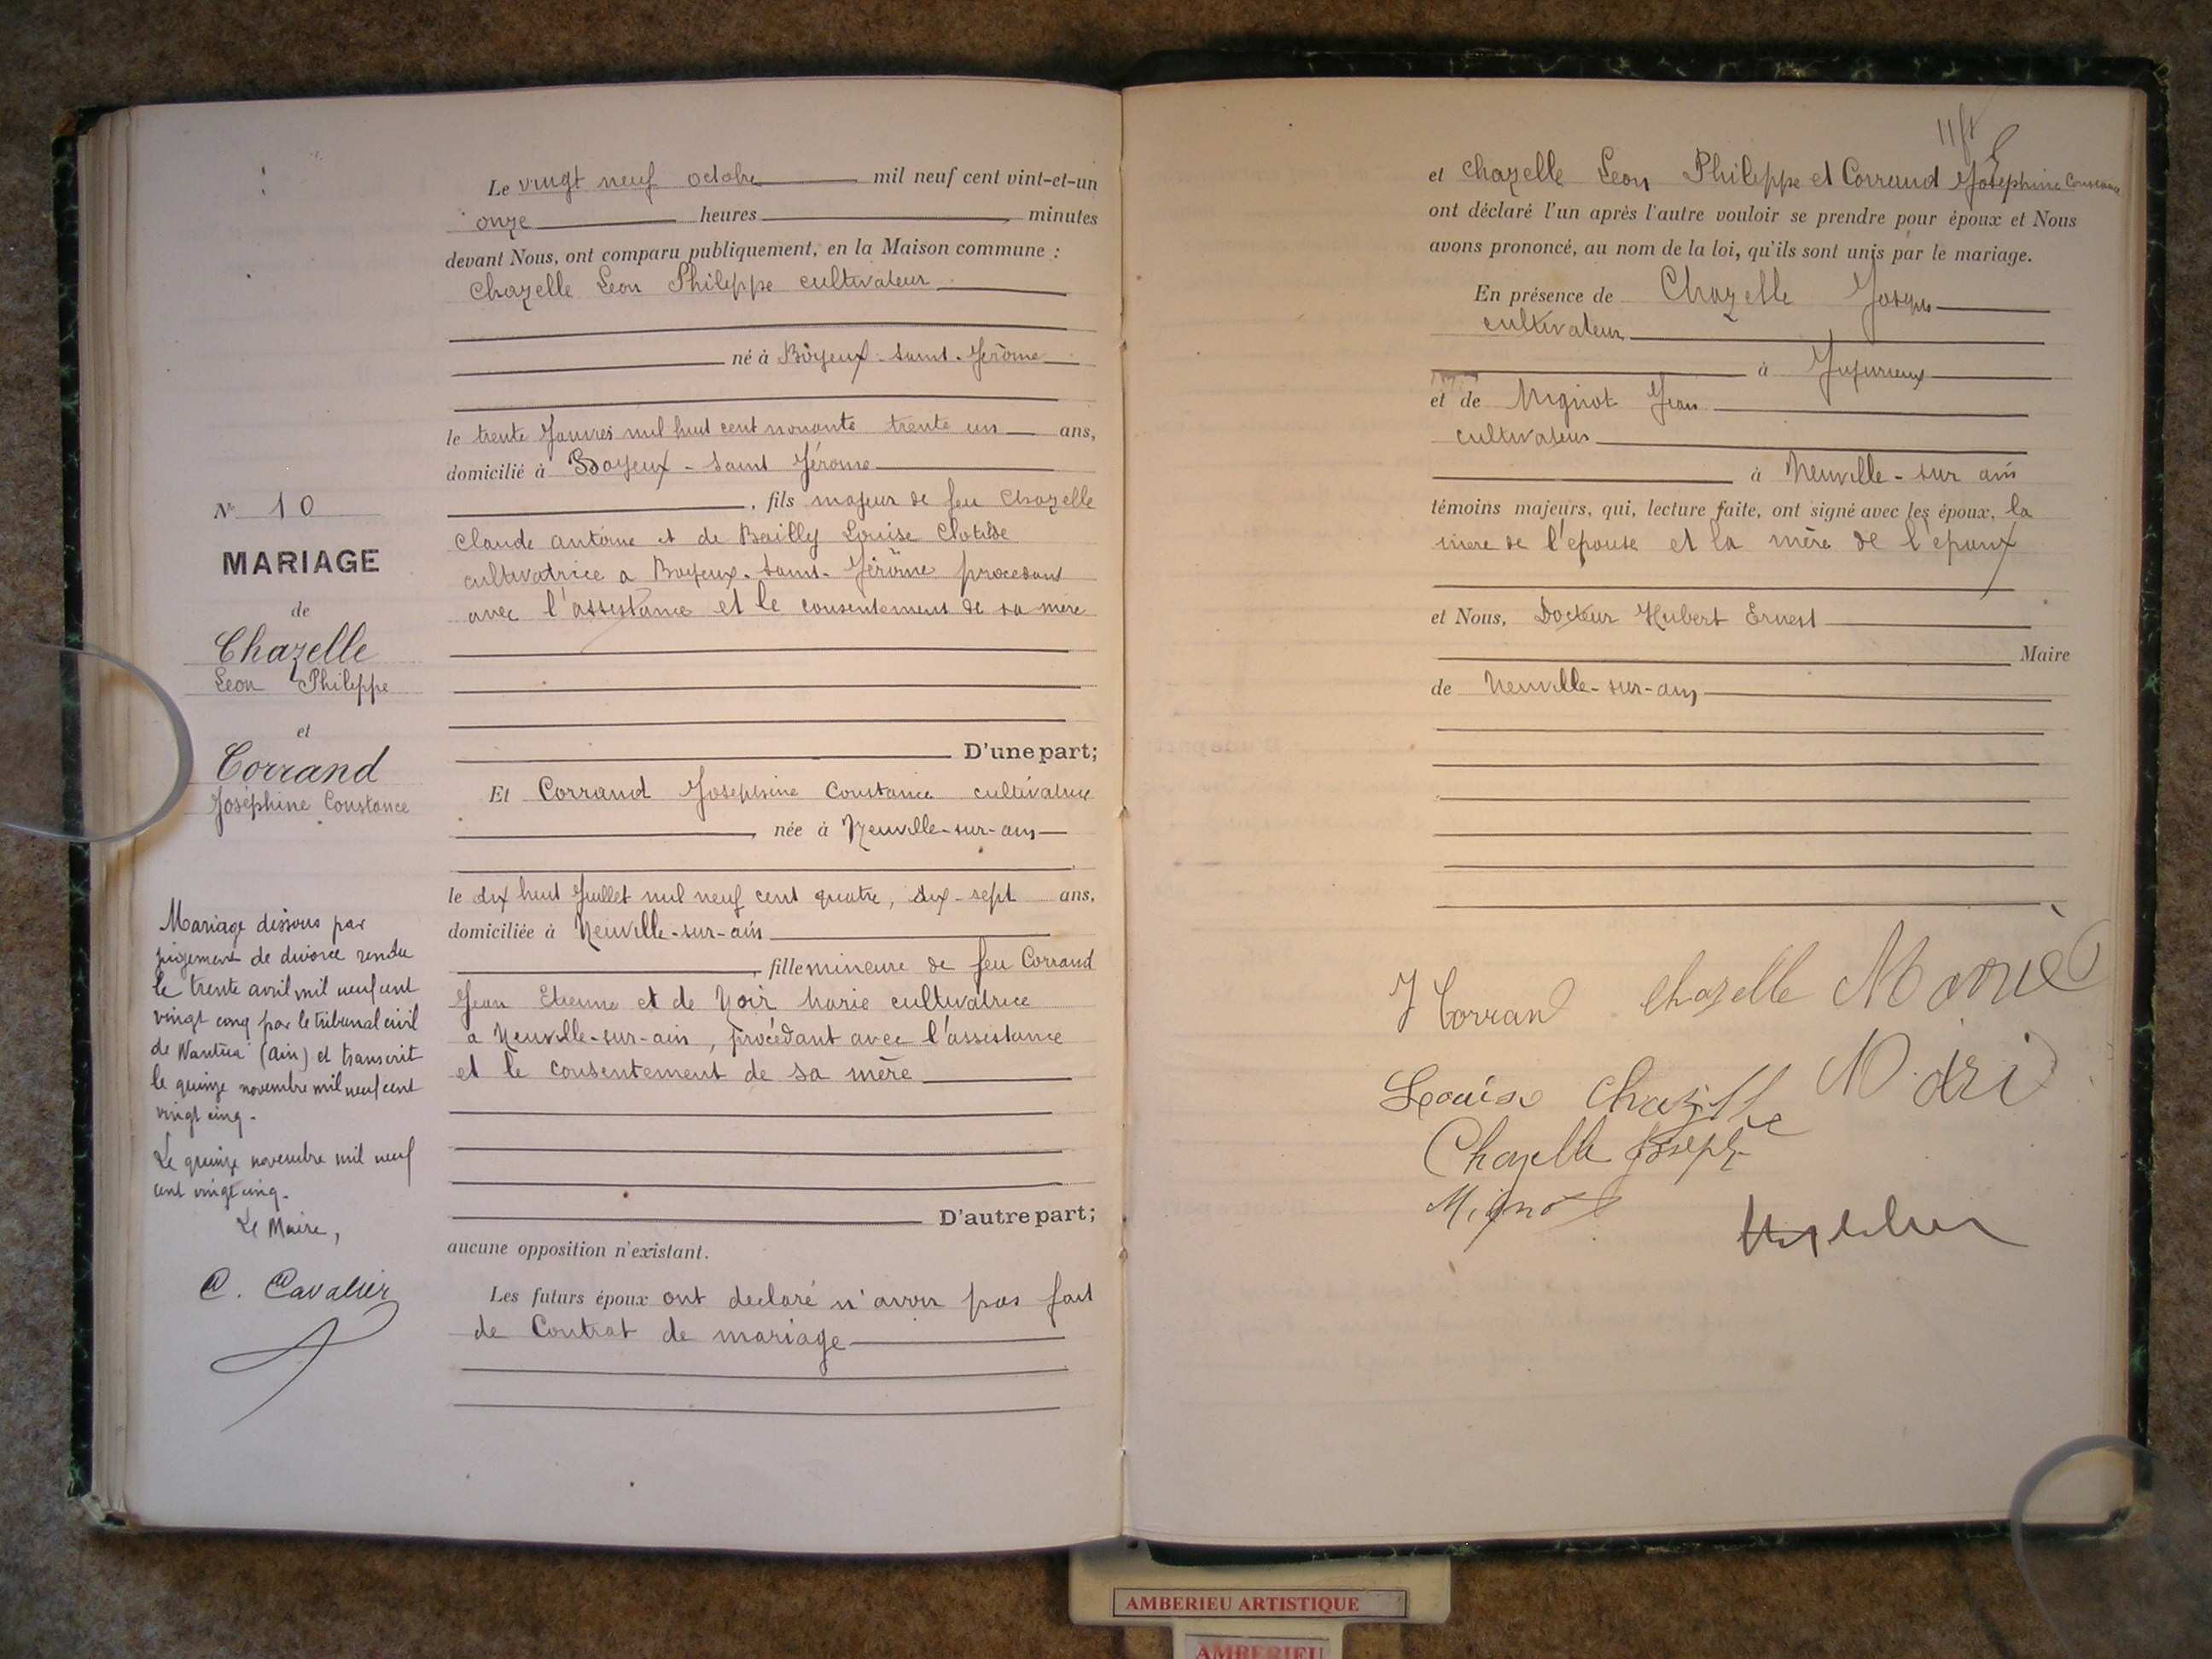 N° 10
MARIAGE
de
Chazelle
Leon Philippe
et
Corrand
Joséphine Constance
Mariage dissous par
jugement de divorce rendu
le trente avril mil neuf cent
vingt cinq par le tribunal civil
de Nantua (Ain) et transcrit
le quinze novembre mil neuf cent
vingt cinq.
Le quinze novembre mil neuf
cent vingt cinq.
Le Maire,
C. Cavalier
Le vingt neuf octobre mil neuf cent vint-et-un
onze heures minutes
devant Nous, ont comparu publiquement, en la Maison commune :
Chazelle Leon Philippe cultivateur
né à Boyeux-saint-Jérôme
le trente Janvier mil huit cent nonante trente un ans,
domicilié à Boyeux-saint Jérome
, fils majeur de feu Chazelle
Claude antoine et de Bailly Louise Clotilde
cultivatrice a Boyeux-saint-Jérôme procedant
avec l'assistance et le consentement de sa mere
D'une part;
Et Corrand Josephine Constance cultivatrice
, née à Neuville-sur-ain
le dix huit Juillet mil neuf cent quatre, dix-sept ans,
domiciliée à Neuville-sur-ain
, fille mineure de feu Corrand
Jean Etienne et de Noir Marie cultivatrice
a Neuville-sur-ain, procédant avec l'assistance
et le consentement de sa mère
D'autre part;
aucune opposition n'existant.
Les futurs époux ont declaré n'avoir pas fait
de Contrat de mariage
et Chazelle Leon Philippe et Corrand Josephine Constance
ont déclaré l'un après l'autre vouloir se prendre pour époux et Nous
avons prononcé, au nom de la loi, qu'ils sont unis par le mariage.
En présence de Chazelle
cultivateur
à Jujurieux
et de Mignot Jean
cultivateur
à Neuville-sur ain
témoins majeurs, qui, lecture faite, ont signé avec les époux, la
mere de l'epouse et la mère de l'epoux
et Nous, Docteur Hubert Ernest
Maire
de Neuville-sur-ain
J Corrand Chazelle
Louise Chazelle
Chazelle Joseph
Mignot
AMBERIEU ARTISTIQUE
AMBERIEU